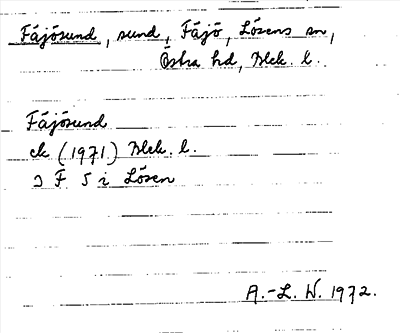 Fäjösund, sund, Fäjö, Lösens sn,
Östra hd, Blek. l.
Fäjösund
ek (1971) Blek. l.
3 F 5 i Lösen
A.-L. W. 1972.